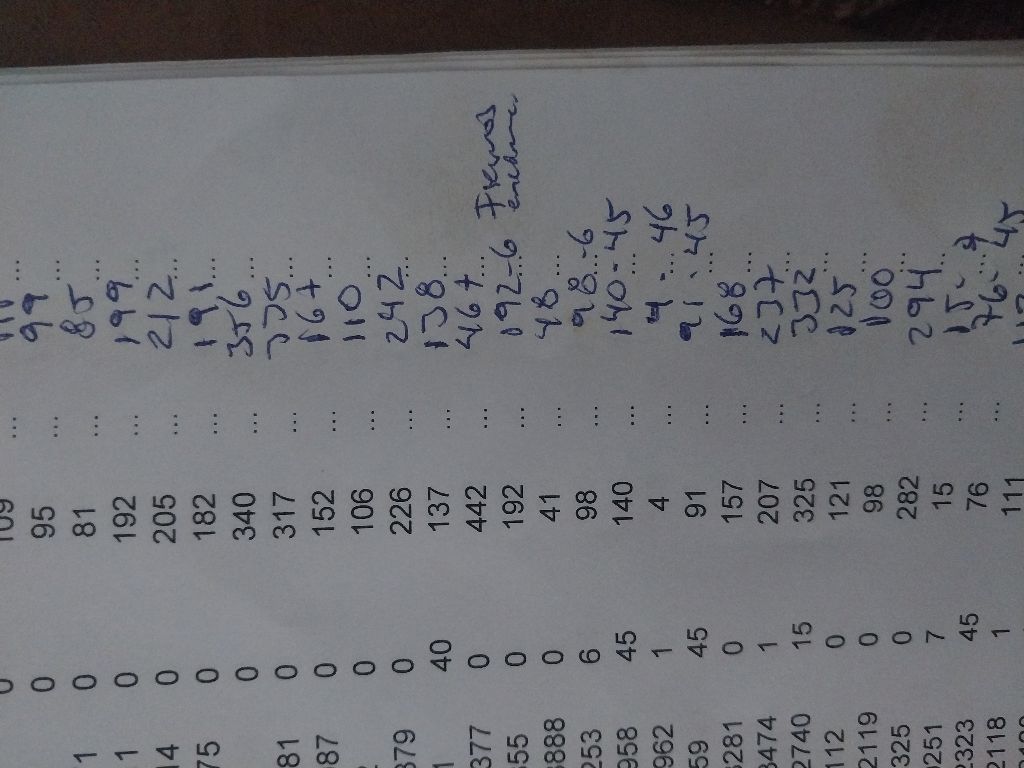 0 109 ... 110 ...
0 95 ... 99 ...
1 0 81 ... 85 ...
1 0 192 ... 199 ...
14 0 205 ... 212 ...
75 0 182 ... 191 ...
0 340 ... 356 ...
81 0 317 ... 335 ...
087 0 152 ... 167 ...
0 106 ... 110 ...
379 0 226 ... 242 ...
1 40 137 ... 138 ...
377 0 442 ... 467 ...
355 0 192 ... 192-6
3888 0 41 ... 48 ...
253 6 98 ... 98-6
958 45 140 ... 140-45
962 1 4 ... 4-46
59 45 91 ... 91-45
3281 0 157 ... 168 ...
3474 1 207 ... 237 ...
2740 15 325 ... 332 ...
112 0 121 ... 125 ...
2119 0 98 ... 100 ...
325 0 282 ... 294 ...
0251 7 15 ... 15-7
2323 45 76 ... 76-45
2118 1 111